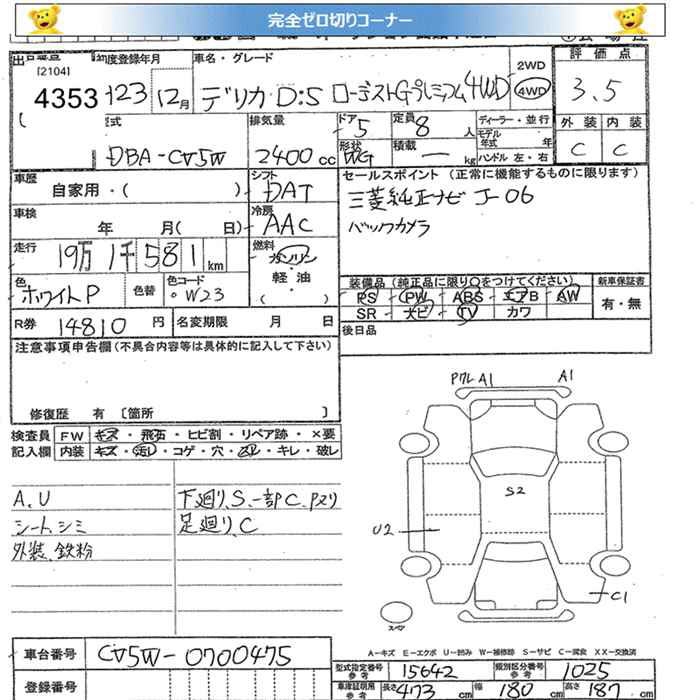 完全ゼロ切りコーナー
評価点
出
[2104]
初度登録年月
車名・グレード
2WD
4WD
4353 123 12月 デリカD:5 ローデストGプレミアム4WD 3.5
型式 排気量 ドア 5 定員 8人 ディーラー・並行
モデル年式 年
外装 内装
DBA-CV5W 2400cc 形状 WG 積載 ー kg ハンドル 左・右 C C
車歴 自家用・( ) シフト DAT セールスポイント (正常に機能するものに限ります)
車検 年 月( 日) 冷房 AAC 三菱純正ナビ J-06
バックカメラ
走行 19万1千581km 燃料 ガソリン
軽・油
( )
色 ホワイトP 色替 色コード W23 装備品(純正品に限り○をつけてください) 新車保証書
PS PW ABS エアB AW 有・無
SR ナビ TV カワ
R券 14810円 名変期限 月 日 後日品
注意事項申告欄(不具合内容等は具体的に記入して下さい)
修復歴 有 〔箇所 〕
検査員 FW キズ・飛石・ヒビ割・リペア跡・×要
記入欄 内装 キズ・汚レ・コゲ・穴・スレ・キレ・破レ
A.U 下廻り、S、一部C、Pヌリ
シート、シミ 足廻り、C
外装、鉄粉
PクレA1 A1
S2
U2
C1
スペア
A-キズ E-エクボ U-凹み W-補修跡 S-サビ C-腐食 XX-交換済
車台番号 CV5W-0700475
型式指定番号 参考 15642 類別区分番号 参考 1025
登録番号
車庫証明用 参考 長さ 473cm 幅 180cm 高さ 187cm